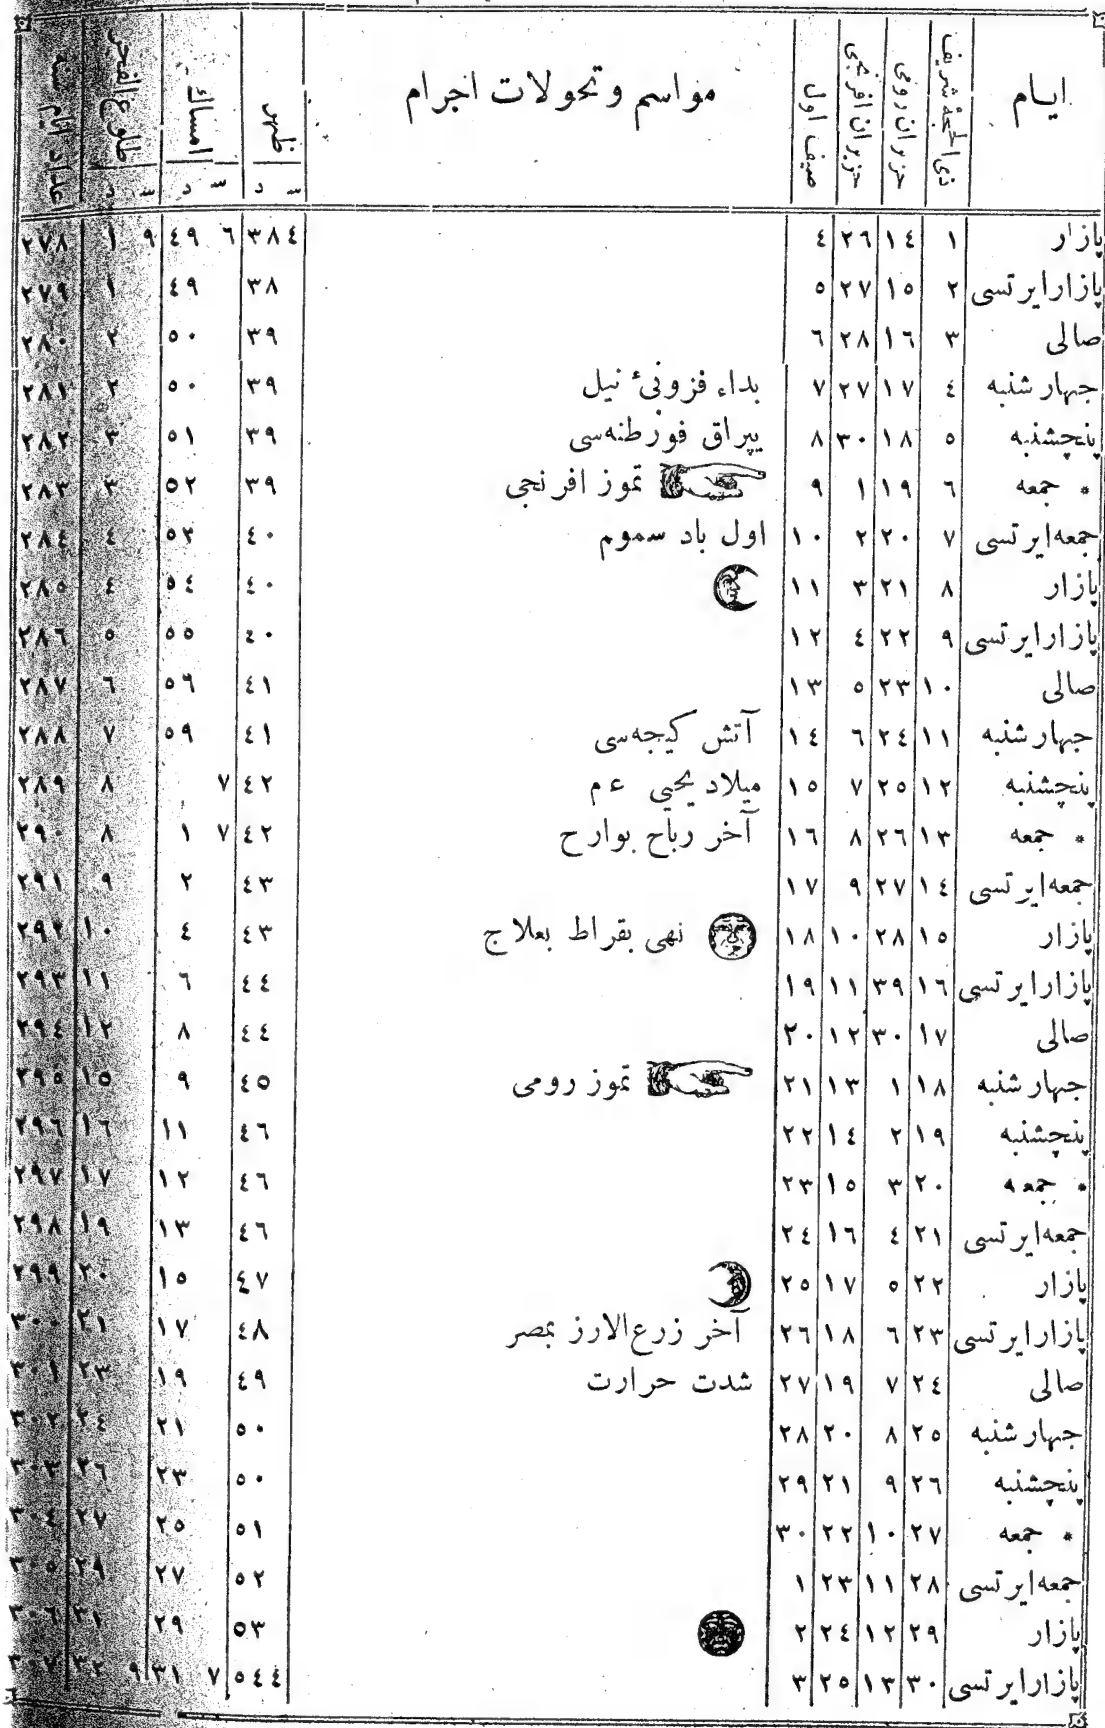 ايام ذى الحجۀ شريف حزيران رومى حزيران افرنجى صيف اول مواسم و تحولات اجرام ظهر امساك طلوع الفجر اعداد ايام سنه
س د س د س د
پازار ١ ١٤ ٢٩ ٤ ٤ ٣٨ ٦ ٤٩ ٩ ١ ٢٧٨
پازارايرتسى ٢ ١٥ ٢٧ ٥ ٣٨ ٤٩ ١ ٢٧٩
صالى ٣ ١٦ ٢٨ ٦ ٣٩ ٥٠ ٢ ٢٨٠
جهارشنبه ٤ ١٧ ٢٧ ٧ بداء فزونئ نيل ٣٩ ٥٠ ٢ ٢٨١
پنجشنبه ٥ ١٨ ٣٠ ٨ يپراق فورطنه‌سى ٣٩ ٥١ ٣ ٢٨٢
* جمعه ٦ ١٩ ١ ٩ تموز افرنجى ٣٩ ٥٢ ٣ ٢٨٣
جمعه‌ايرتسى ٧ ٢٠ ٢ ١٠ اول باد سموم ٤٠ ٥٣ ٤ ٢٨٤
پازار ٨ ٢١ ٣ ١١ ٤٠ ٥٤ ٤ ٢٨٥
پازارايرتسى ٩ ٢٢ ٤ ١٢ ٤٠ ٥٥ ٥ ٢٨٦
صالى ١٠ ٢٣ ٥ ١٣ ٤١ ٥٦ ٦ ٢٨٧
جهارشنبه ١١ ٢٤ ٦ ١٤ آتش كيجه‌سى ٤١ ٥٩ ٧ ٢٨٨
پنجشنبه ١٢ ٢٥ ٧ ١٥ ميلاد يحيى ع م ٤٢ ٧ ٨ ٢٨٩
* جمعه ١٣ ٢٦ ٨ ١٦ آخر رباح بوارح ٤٢ ٧ ١ ٨ ٢٩٠
جمعه‌ايرتسى ١٤ ٢٧ ٩ ١٧ ٤٣ ٢ ٩ ٢٩١
پازار ١٥ ٢٨ ١٠ ١٨ نهى بقراط بعلاج ٤٣ ٤ ١٠ ٢٩٢
پازارايرتسى ١٦ ٣٩ ١١ ١٩ ٤٤ ٦ ١١ ٢٩٣
صالى ١٧ ٣٠ ١٢ ٢٠ ٤٤ ٨ ١٢ ٢٩٤
جهارشنبه ١٨ ١ ١٣ ٢١ تموز رومى ٤٥ ٩ ١٥ ٢٩٥
پنجشنبه ١٩ ٢ ١٤ ٢٢ ٤٦ ١١ ١٦ ٢٩٦
* جمعه ٢٠ ٣ ١٥ ٢٣ ٤٦ ١٢ ١٧ ٢٩٧
جمعه‌ايرتسى ٢١ ٤ ١٦ ٢٤ ٤٦ ١٣ ١٩ ٢٩٨
پازار ٢٢ ٥ ١٧ ٢٥ ٤٧ ١٥ ٢٠ ٢٩٩
پازارايرتسى ٢٣ ٦ ١٨ ٢٦ آخر زرع‌الارز بمصر ٤٨ ١٧ ٢١ ٣٠٠
صالى ٢٤ ٧ ١٩ ٢٧ شدت حرارت ٤٩ ١٩ ٢٣ ٣٠١
جهارشنبه ٢٥ ٨ ٢٠ ٢٨ ٥٠ ٢١ ٢٤ ٣٠٢
پنجشنبه ٢٦ ٩ ٢١ ٢٩ ٥٠ ٢٣ ٢٦ ٣٠٣
* جمعه ٢٧ ١٠ ٢٢ ٣٠ ٥١ ٢٥ ٢٧ ٣٠٤
جمعه‌ايرتسى ٢٨ ١١ ٢٣ ١ ٥٢ ٢٧ ٢٩ ٣٠٥
پازار ٢٩ ١٢ ٢٤ ٢ ٥٣ ٢٩ ٣١ ٣٠٦
پازارايرتسى ٣٠ ١٣ ٢٥ ٣ ٤ ٥٤ ٧ ٣١ ٩ ٣٢ ٣٠٧